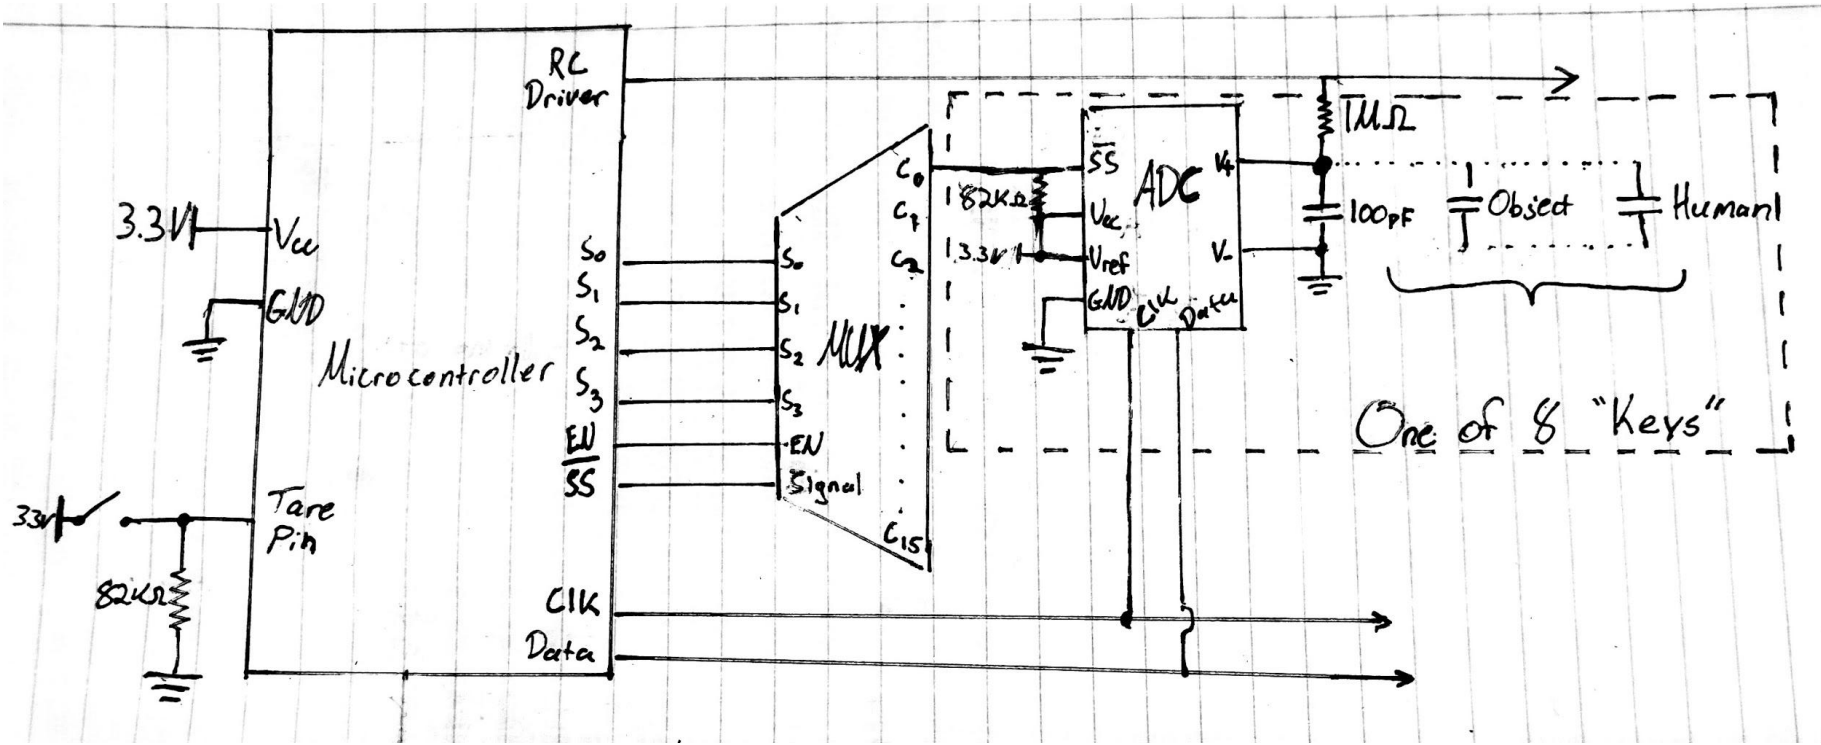 RC
Driver
3.3V
Vcc
GND
Microcontroller
S0
S1
S2
S3
EN
SS
Tare
Pin
33V
82KΩ
Clk
Data
S0
S1
S2
S3
EN
Signal
MUX
C0
C1
C2
C15
82KΩ
3.3V
SS
Vcc
Vref
GND
Clk
Data
ADC
V+
V-
1MΩ
100pF
Object
Human
One of 8 "Keys"